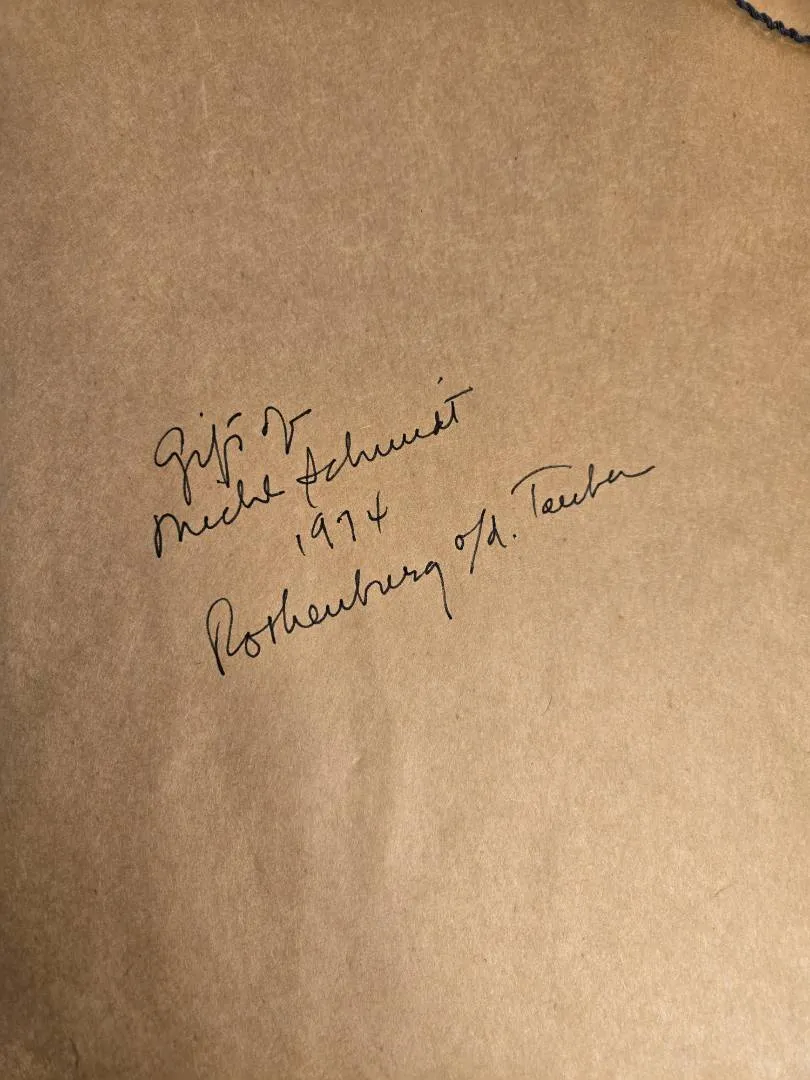 Gift of
Michl Schmidt
1974
Rothenburg o/d. Tauber